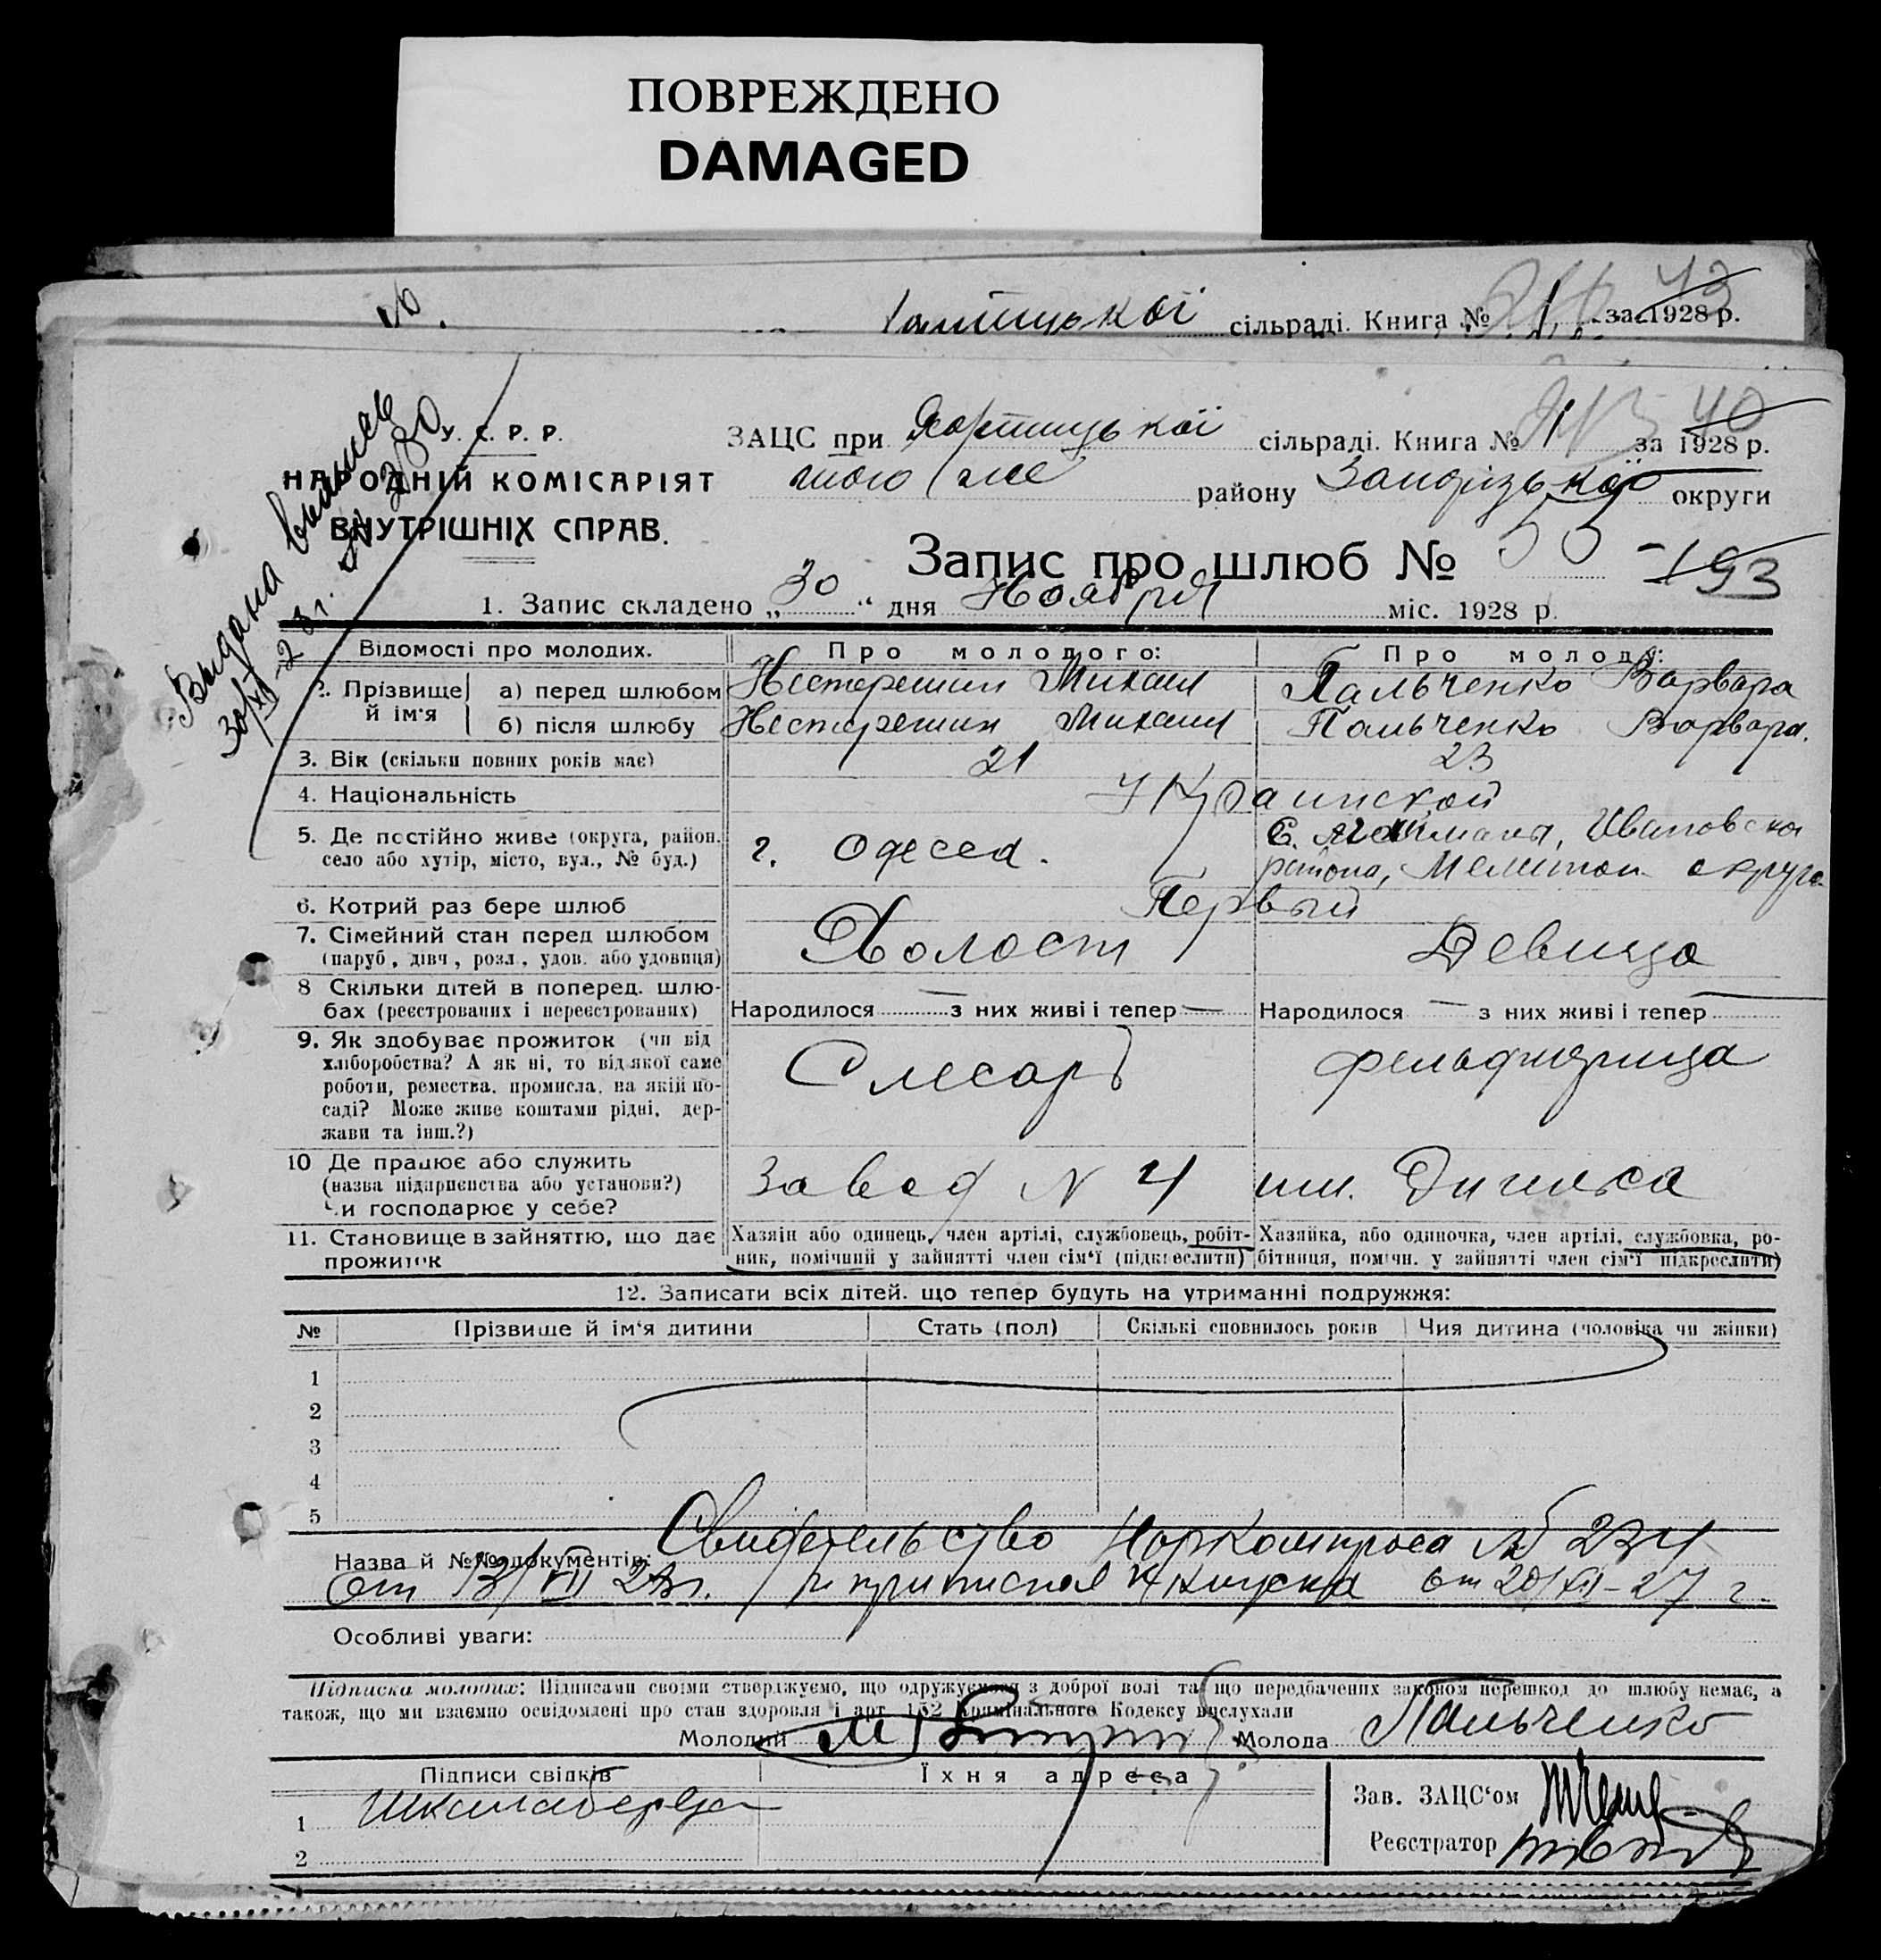 ПОВРЕЖДЕНО
DAMAGED
сільраді. Книга № 1 за 1928 р. 43
Выдана выпись
30/XI-28 г. № 280
У. С. Р. Р.
НАРОДНІЙ КОМІСАРІЯТ
ВНУТРІШНІХ СПРАВ.
ЗАЦС при Хортицької сільраді. Книга № 1 за 1928 р. 40
того же району Запорізької округи
Запис про шлюб № 55 - 193
1. Запис складено „30“ дня Ноября міс. 1928 р.
Відомості про молодих. Про молодого: Про молоду:
2. Прізвище й ім'я
а) перед шлюбом Нестерешин Михаил Пальченко Варвара
б) після шлюбу Нестерешин Михаил Пальченко Варвара.
3. Вік (скільки повних років має) 21 23
4. Національність Украинской
5. Де постійно живе (округа, район, село або хутір, місто, вул., № буд.) г. Одесса. Ивановского района, Мелитоп. округа
6. Котрий раз бере шлюб Первый
7. Сімейний стан перед шлюбом (паруб., дівч., розл., удов. або удовиця) Холост Девица
8 Скільки дітей в поперед. шлюбах (реєстрованих і нереєстрованих) Народилося — з них живі і тепер — Народилося — з них живі і тепер
9. Як здобуває прожиток (чи від хліборобства? А як ні, то від якої саме роботи, ремества, промисла, на якій посаді? Може живе коштами рідні, держави та інш.?) Слесарь фельдшерица
10 Де працює або служить (назва підприємства або установи?) Чи господарює у себе? Завод № 4
11. Становище в зайняттю, що дає прожиток
Хазяїн або одинець, член артілі, службовець, робітник, помічний у зайнятті член сім'ї (підкреслити)
Хазяйка, або одиночка, член артілі, службовка, робітниця, помічн. у зайнятті член сім'ї підкреслити)
12. Записати всіх дітей, що тепер будуть на утриманні подружжя:
№ Прізвище й ім'я дитини Стать (пол) Скількі сповнилось років Чия дитина (чоловіка чи жінки)
1
2
3
4
5
Назва й №№ документів: Свидетельство Наркомпроса № 234
от 23 г. и приписная книжка от 20/XII-27 г.
Особливі уваги:
Підписка молодих: Підписами своїми стверджуємо, що одружуємося з доброї волі та що передбачених законом перешкод до шлюбу немає, а
також, що ми взаємно освідомлені про стан здоровля і арт. 152 Кримінального Кодексу вислухали
Молодий Молода Пальченко
Підписи свідків Їхня адреса
1
2
Зав. ЗАЦС'ом
Реєстратор